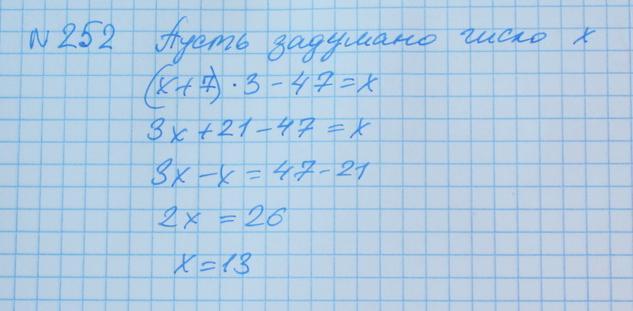 N 252 Пусть задумано число x
(x+7)·3-47=x
3x+21-47=x
3x-x=47-21
2x=26
x=13